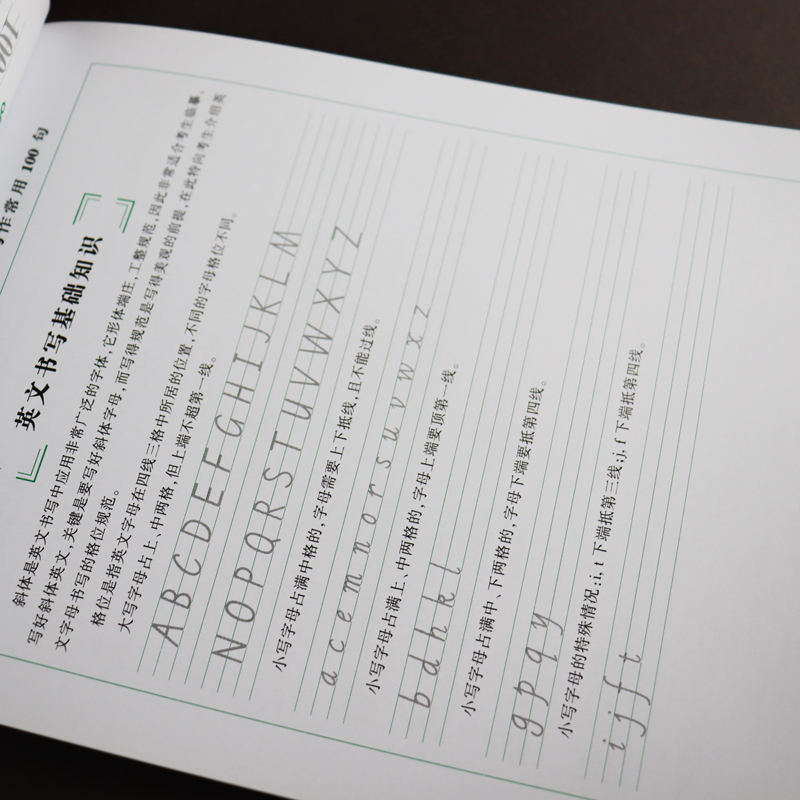 001
作常用 100 句
英文书写基础知识
斜体是英文书写中应用非常广泛的字体,它形体端庄,工整规范,因此非常适合考生临摹。
写好斜体英文,关键是要写好斜体字母,而写得规范是写得美观的前提,在此特向考生介绍英
文字母书写的格位规范。
格位是指英文字母在四线三格中所居的位置,不同的字母格位不同。
大写字母占上、中两格,但上端不超第一线。
A B C D E F G H I J K L M
N O P Q R S T U V W X Y Z
小写字母占满中格的,字母需要上下抵线,且不能过线。
a c e m n o r s u v w x z
小写字母占满上、中两格的,字母上端要顶第一线。
b d h k l
小写字母占满中、下两格的,字母下端要抵第四线。
g p q y
小写字母的特殊情况:i,t 下端抵第三线;j,f 下端抵第四线。
i j f t